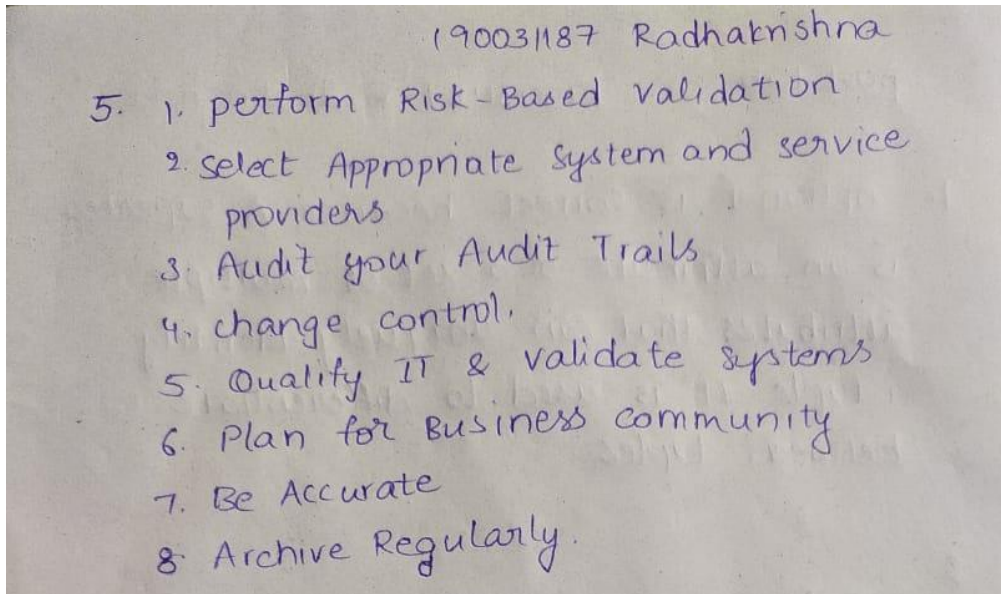 190031187 Radhakrishna
5. 1. perform Risk-Based validation
2. select Appropriate system and service
providers
3. Audit your Audit Trails
4. change control.
5. Qualify IT & validate systems
6. Plan for Business community
7. Be Accurate
8 Archive Regularly.